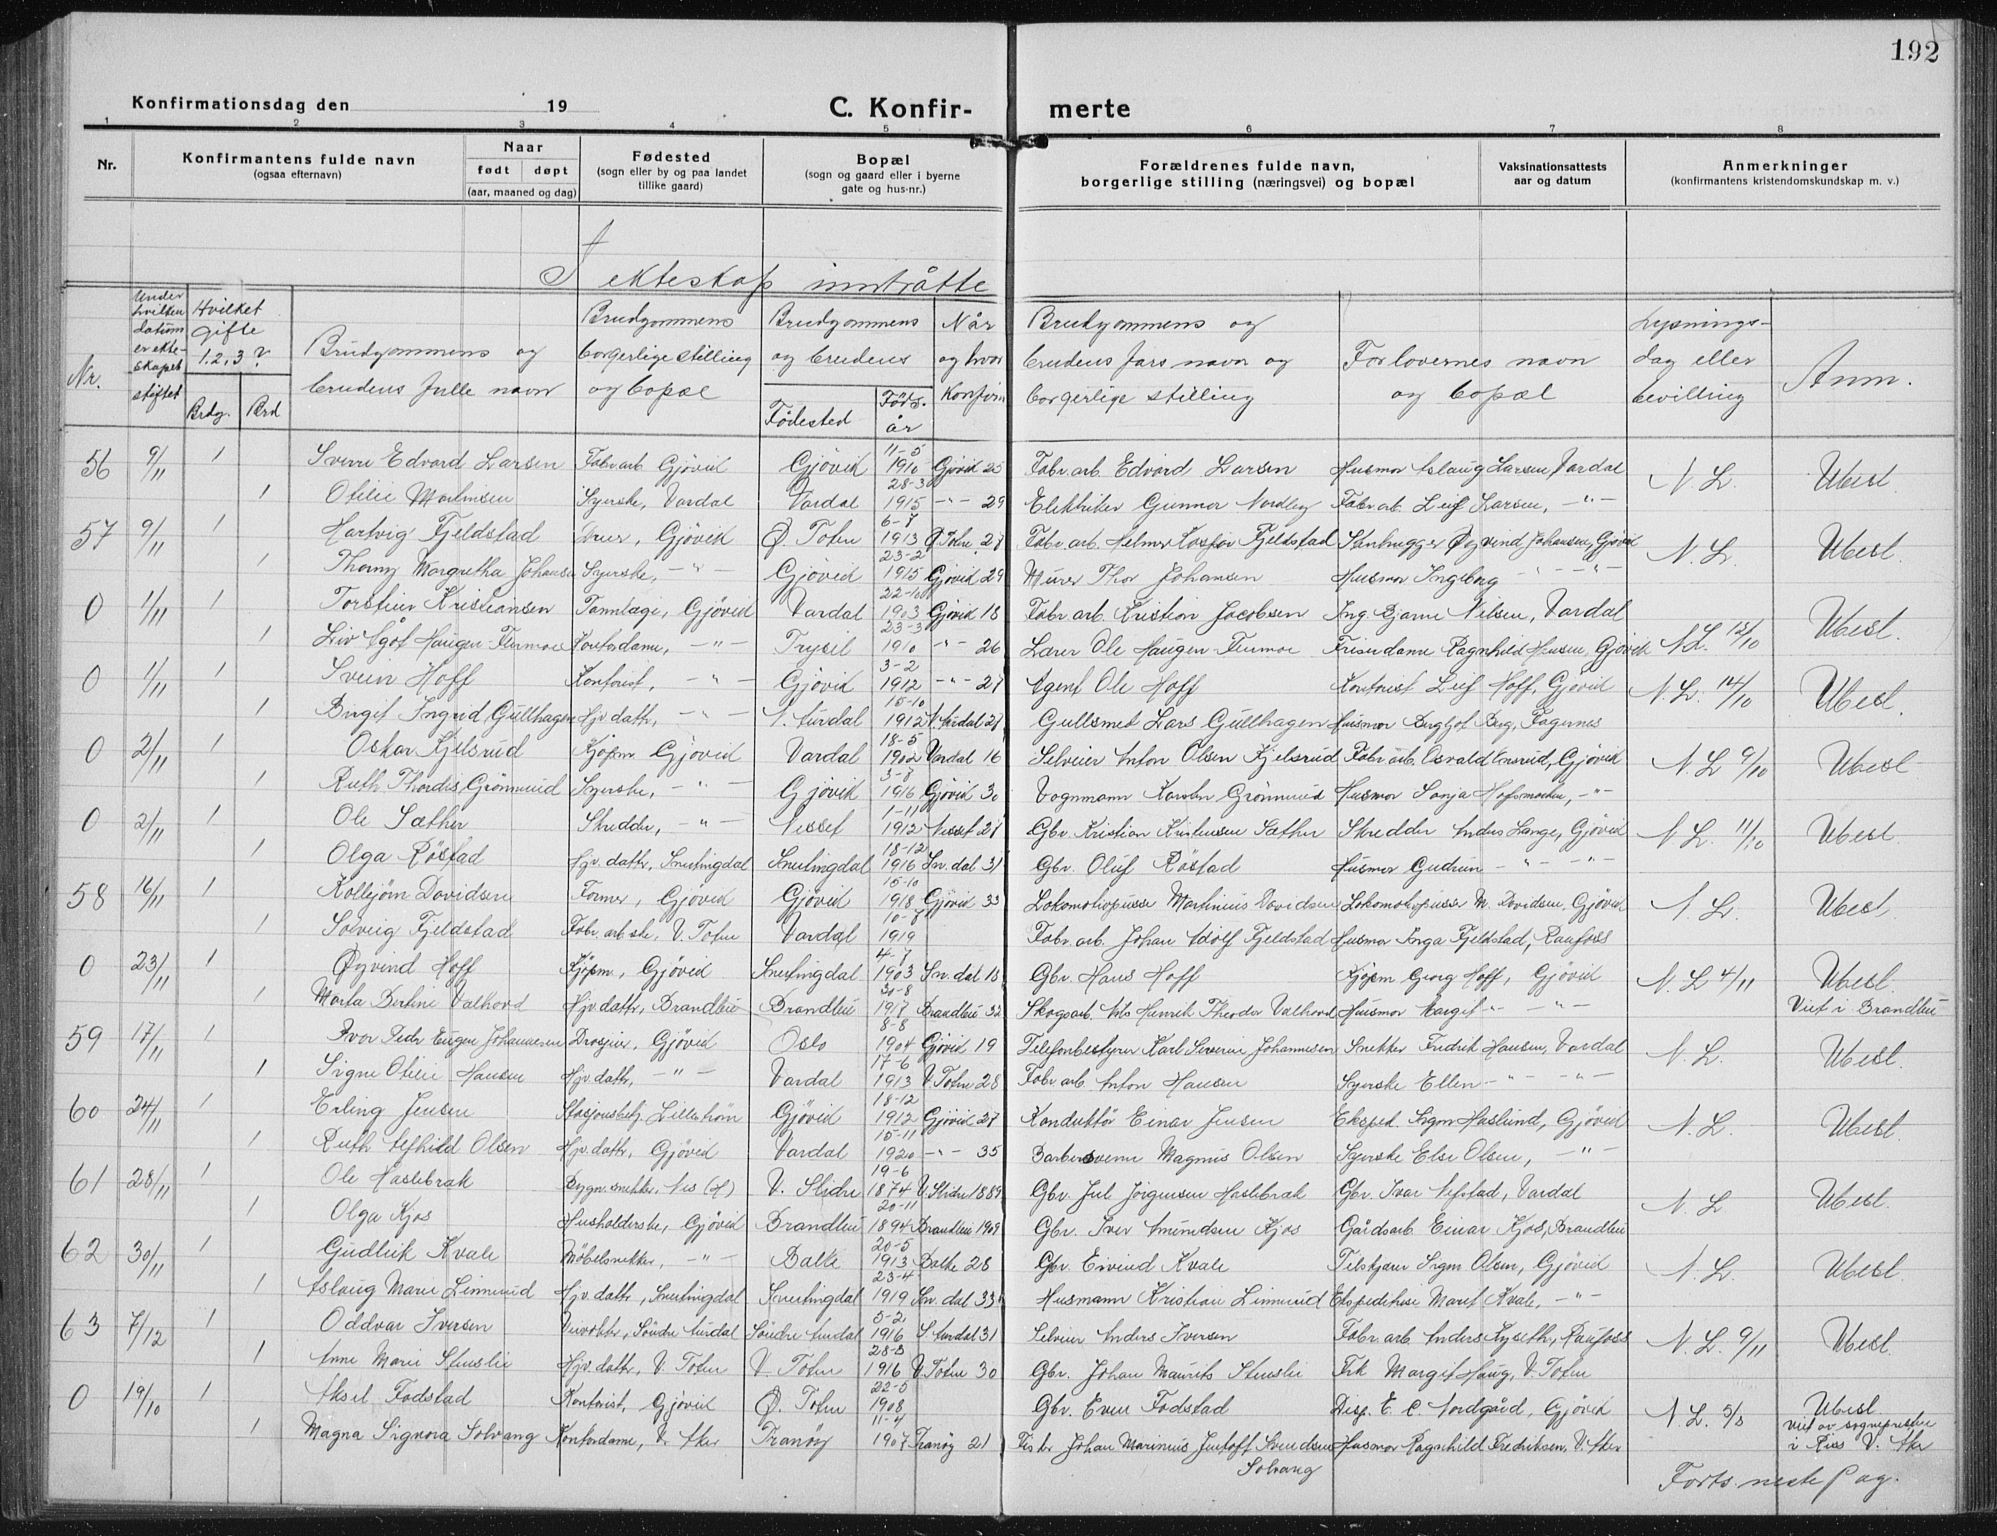 192
Konfirmationsdag den 19
C. Konfir- merte
1 2 3 4 5 6 7 8
Nr.
Konfirmantens fulde navn
(ogsaa efternavn)
Naar
født døpt
(aar, maaned og dag)
Fødested
(sogn eller by og paa landet
tillike gaard)
Bopæl
(sogn og gaard eller i byerne
gate og hus-nr.)
Forældrenes fulde navn,
borgerlige stilling (næringsvei) og bopæl
Vaksinationsattests
aar og datum
Anmerkninger
(konfirmantens kristendomskundskap m. v.)
I ekteskap inntrådte
Nr.
Under
hvilken
datum
er ekte-
skapet
stiftet
Hvilket
gifte
1. 2. 3 ?
Brdg. Brd
Brudgommens og
brudens fulle navn
Brudgommens
borgerlige stilling
og bopæl
Brudgommens
og brudens
Fødested
Føds.
år
Når
og hvor
konfirm
Brudgommens og
brudens fars navn og
borgerlige stilling
Forlovernes navn
og bopæl
Lysnings-
dag eller
bevilling
Anm.
56 9/11 1 Sverre Edvard Larsen Fabr.arb. Gjövik Gjövik 11-5 1910 Gjövik 25 Fabr.arb. Edvard Larsen Husmor Aslaug Larsen, Vardal N. L. Ubesl.
1 Otilie Martinsen Syerske, Vardal Vardal 28-3 1915 -"- 29 Elektriker Gunnar Nordleg Fabr.arb. Leif Larsen, -"-
57 9/11 1 Hartvig Fjeldstad Gjövik Ø. Toten 6-7 1913 Ø. Toten 27 Fabr.arb. Helmer Fjeldstad Øyvind Johansen, Gjövik N. L. Ubesl.
1 Thorny Margretha Johansen Syerske, -"- Gjövik 23-2 1915 Gjövik 29 Murer Thor Johansen Husmor Ingeborg -"- -"-
0 1/11 1 Torstein Kristiansen Tannlæge, Gjövik Vardal 22-10 1903 Gjövik 18 Fabr.arb. Kristian Jacobsen Ing. Bjarne Nilsen, Vardal N. L. 12/10 Ubesl.
1 Liv Ågot Haugen-Flermoe Kontordame, -"- Trysil 23-3 1910 -"- 26 Lærer Ole Haugen-Flermoe Frisørdame Ragnhild Hansen, Gjövik
0 1/11 1 Svein Hoff Kontorist, -"- Gjövik 3-2 1912 -"- 27 Agent Ole Hoff Kontorist Leif Hoff, Gjövik N. L. 14/10 Ubesl.
1 Birgit Ingrid Gullhagen Hjv. datter, -"- N. Aurdal 15-10 1912 N. Aurdal 27 Gullsmed Lars Gullhagen Husmor Berg, Fagernes
0 2/11 1 Oskar Kjelsrud Kjøpm. Gjövik Vardal 18-5 1902 Vardal 16 Selveier Anton Olsen Kjelsrud Fabr.arb. Osvald Gjövik N. L. 9/10 Ubesl.
1 Ruth Thordis Grönnerud Syerske, -"- Gjövik 3-8 1916 Gjövik 30 Vognmann Karsten Grönnerud Husmor Sonja -"-
0 2/11 1 Ole Sæther Skredder, -"- Nesset 1-11 1912 Nesset 27 Gbr. Kristian Kristensen Sæther Skredder Anders Lange, Gjövik N. L. 11/10 Ubesl.
1 Olga Röstad Hjv. datter, Snertingdal Snertingdal 18-12 1916 Sn.dal 31 Gbr. Oluf Röstad Husmor Gudrun -"- -"-
58 16/11 1 Kolbjørn Davidsen Former, Gjövik Gjövik 15-10 1918 Gjövik 33 Lokomotivpusser Martinius Davidsen Lokomotivpusser M. Davidsen, Gjövik N. L. Ubesl.
1 Solveig Fjeldstad Fabr.arb.ske, V. Toten Vardal 10-7 1919 Fabr.arb. Johan Adolf Fjeldstad Husmor Inga Fjeldstad, Raufoss
0 23/11 1 Øyvind Hoff Kjøpm., Gjövik Snertingdal 4-7 1903 Sn.dal 18 Gbr. Hans Hoff Kjøpm. Georg Hoff, Gjövik N. L. 4/11 Ubesl.
1 Marta Bertine Valhovd Hjv. datter, Brandbu Brandbu 31-8 1917 Brandbu 32 Skogsarb. Nils Henrik Theodor Valhovd Husmor Margit -"- -"- Viet i Brandbu
59 17/11 1 Ivar Peder Eugen Johannesen Drosjeeier, Gjövik Oslo 8-8 1904 Gjövik 19 Telefonbestyrer Karl Severin Johannesen Snekker Fredrik Hansen, Vardal N. L. Ubesl.
1 Signe Otilie Hansen Hjv. datter, -"- Vardal 17-6 1913 V. Toten 28 Fabr.arb. Anton Hansen Syerske Ellen -"- -"-
60 24/11 1 Erling Jensen Stasjonsbetj. Lilleström Gjövik 18-12 1912 Gjövik 27 Konduktör Einar Jensen Eksped. Sigm Haslund, Gjövik N. L. Ubesl.
1 Ruth Alfhild Olsen Hjv. datter, Gjövik Vardal 15-11 1920 -"- 35 Barbersvenn Magnus Olsen Syerske Else Olsen, -"-
61 28/11 1 Ole Haslebrak Bygn.snekker, Nes (H) V. Slidre 19-6 1874 V. Slidre 1889 Gbr. Jul Jörgensen Haslebrak Gbr. Ivar Nefstad, Vardal N. L. Ubesl.
1 Olga Kjos Husholderske, Gjövik Brandbu 20-11 1894 Brandbu 1909 Gbr. Iver Amundsen Kjos Gårdsarb. Einar Kjos, Brandbu
62 30/11 1 Gudleik Kvale Möbelsnekker, -"- Balke 20-5 1913 Balke 28 Gbr. Eivind Kvale Tilskjærer Sigm Olsen, Gjövik N. L. Ubesl.
1 Aslaug Marie Linnerud Hjv. datter, Snertingdal Snertingdal 23-4 1919 Sn.dal 33 Husmann Kristian Linnerud Ekspeditrise Marit Kvale, -"-
63 7/12 1 Oddvar Iversen Söndre Aurdal Söndre Aurdal 5-2 1916 S. Aurdal 31 Selveier Anders Iversen Fabr.arb. Anders Kyseth, Raufoss N. L. 9/11 Ubesl.
1 Anne Marie Stenslie Hjv. datter, V. Toten V. Toten 28-3 1916 V. Toten 30 Gbr. Johan Maurits Stenslie Frk Margit Haug, V. Toten
0 19/10 1 Aksel Fodstad Kontorist, Gjövik Ø. Toten 22-5 1908 Gbr. Even Fodstad Disp. E. C. Nordgård, Gjövik N. L. 5/8 Ubesl.
1 Magna Signora Solvang Kontordame, V. Aker Tranöy 11-4 1907 Tranöy 21 Fisker Johan Marinius Jentoft Svendsen Solvang Husmor Ragnhild Fredriksen, V. Aker viet av sogneprest i Riss V. Aker
Forts. neste pag.